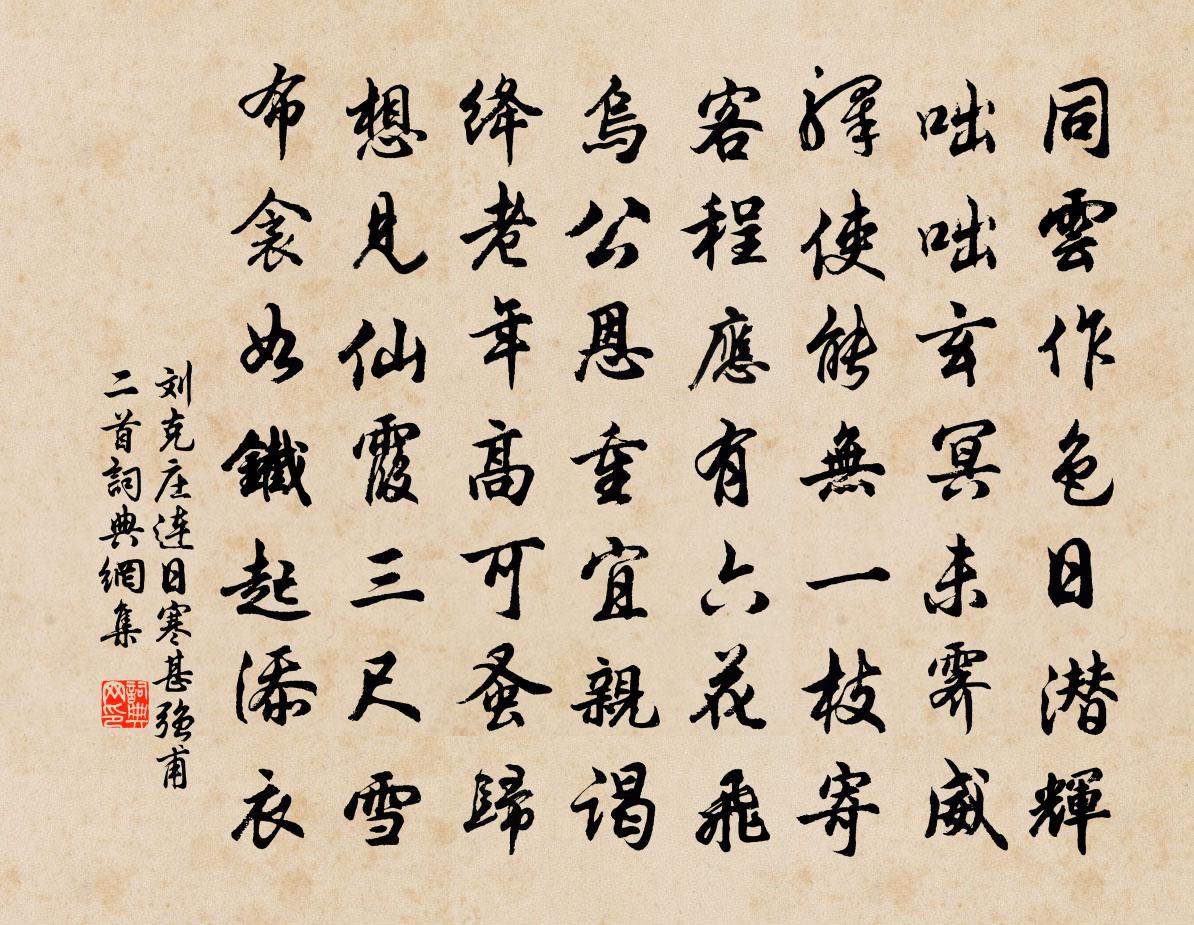 同雲作色日潜輝
咄咄玄冥未霽威
驛使能無一枝寄
客程應有六花飛
烏公恩重宜親謁
绛老年高可蚤歸
想見仙霞三尺雪
布衾如鐵起添衣
刘克庄连日寒甚强甫
二首詞典網集
詞典
网印